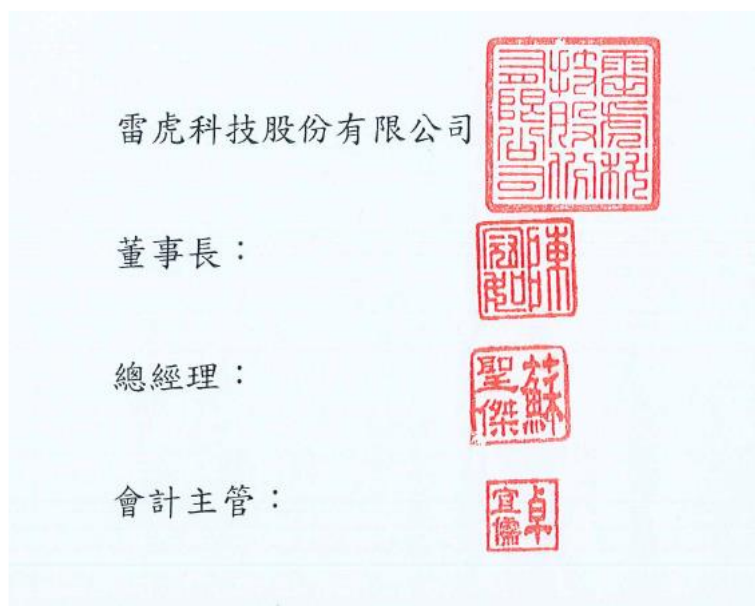 雷虎科技股份有限公司 雷虎科技股份有限公司
董事長： 陳冠如
總經理： 蘇聖傑
會計主管： 卓宜儒